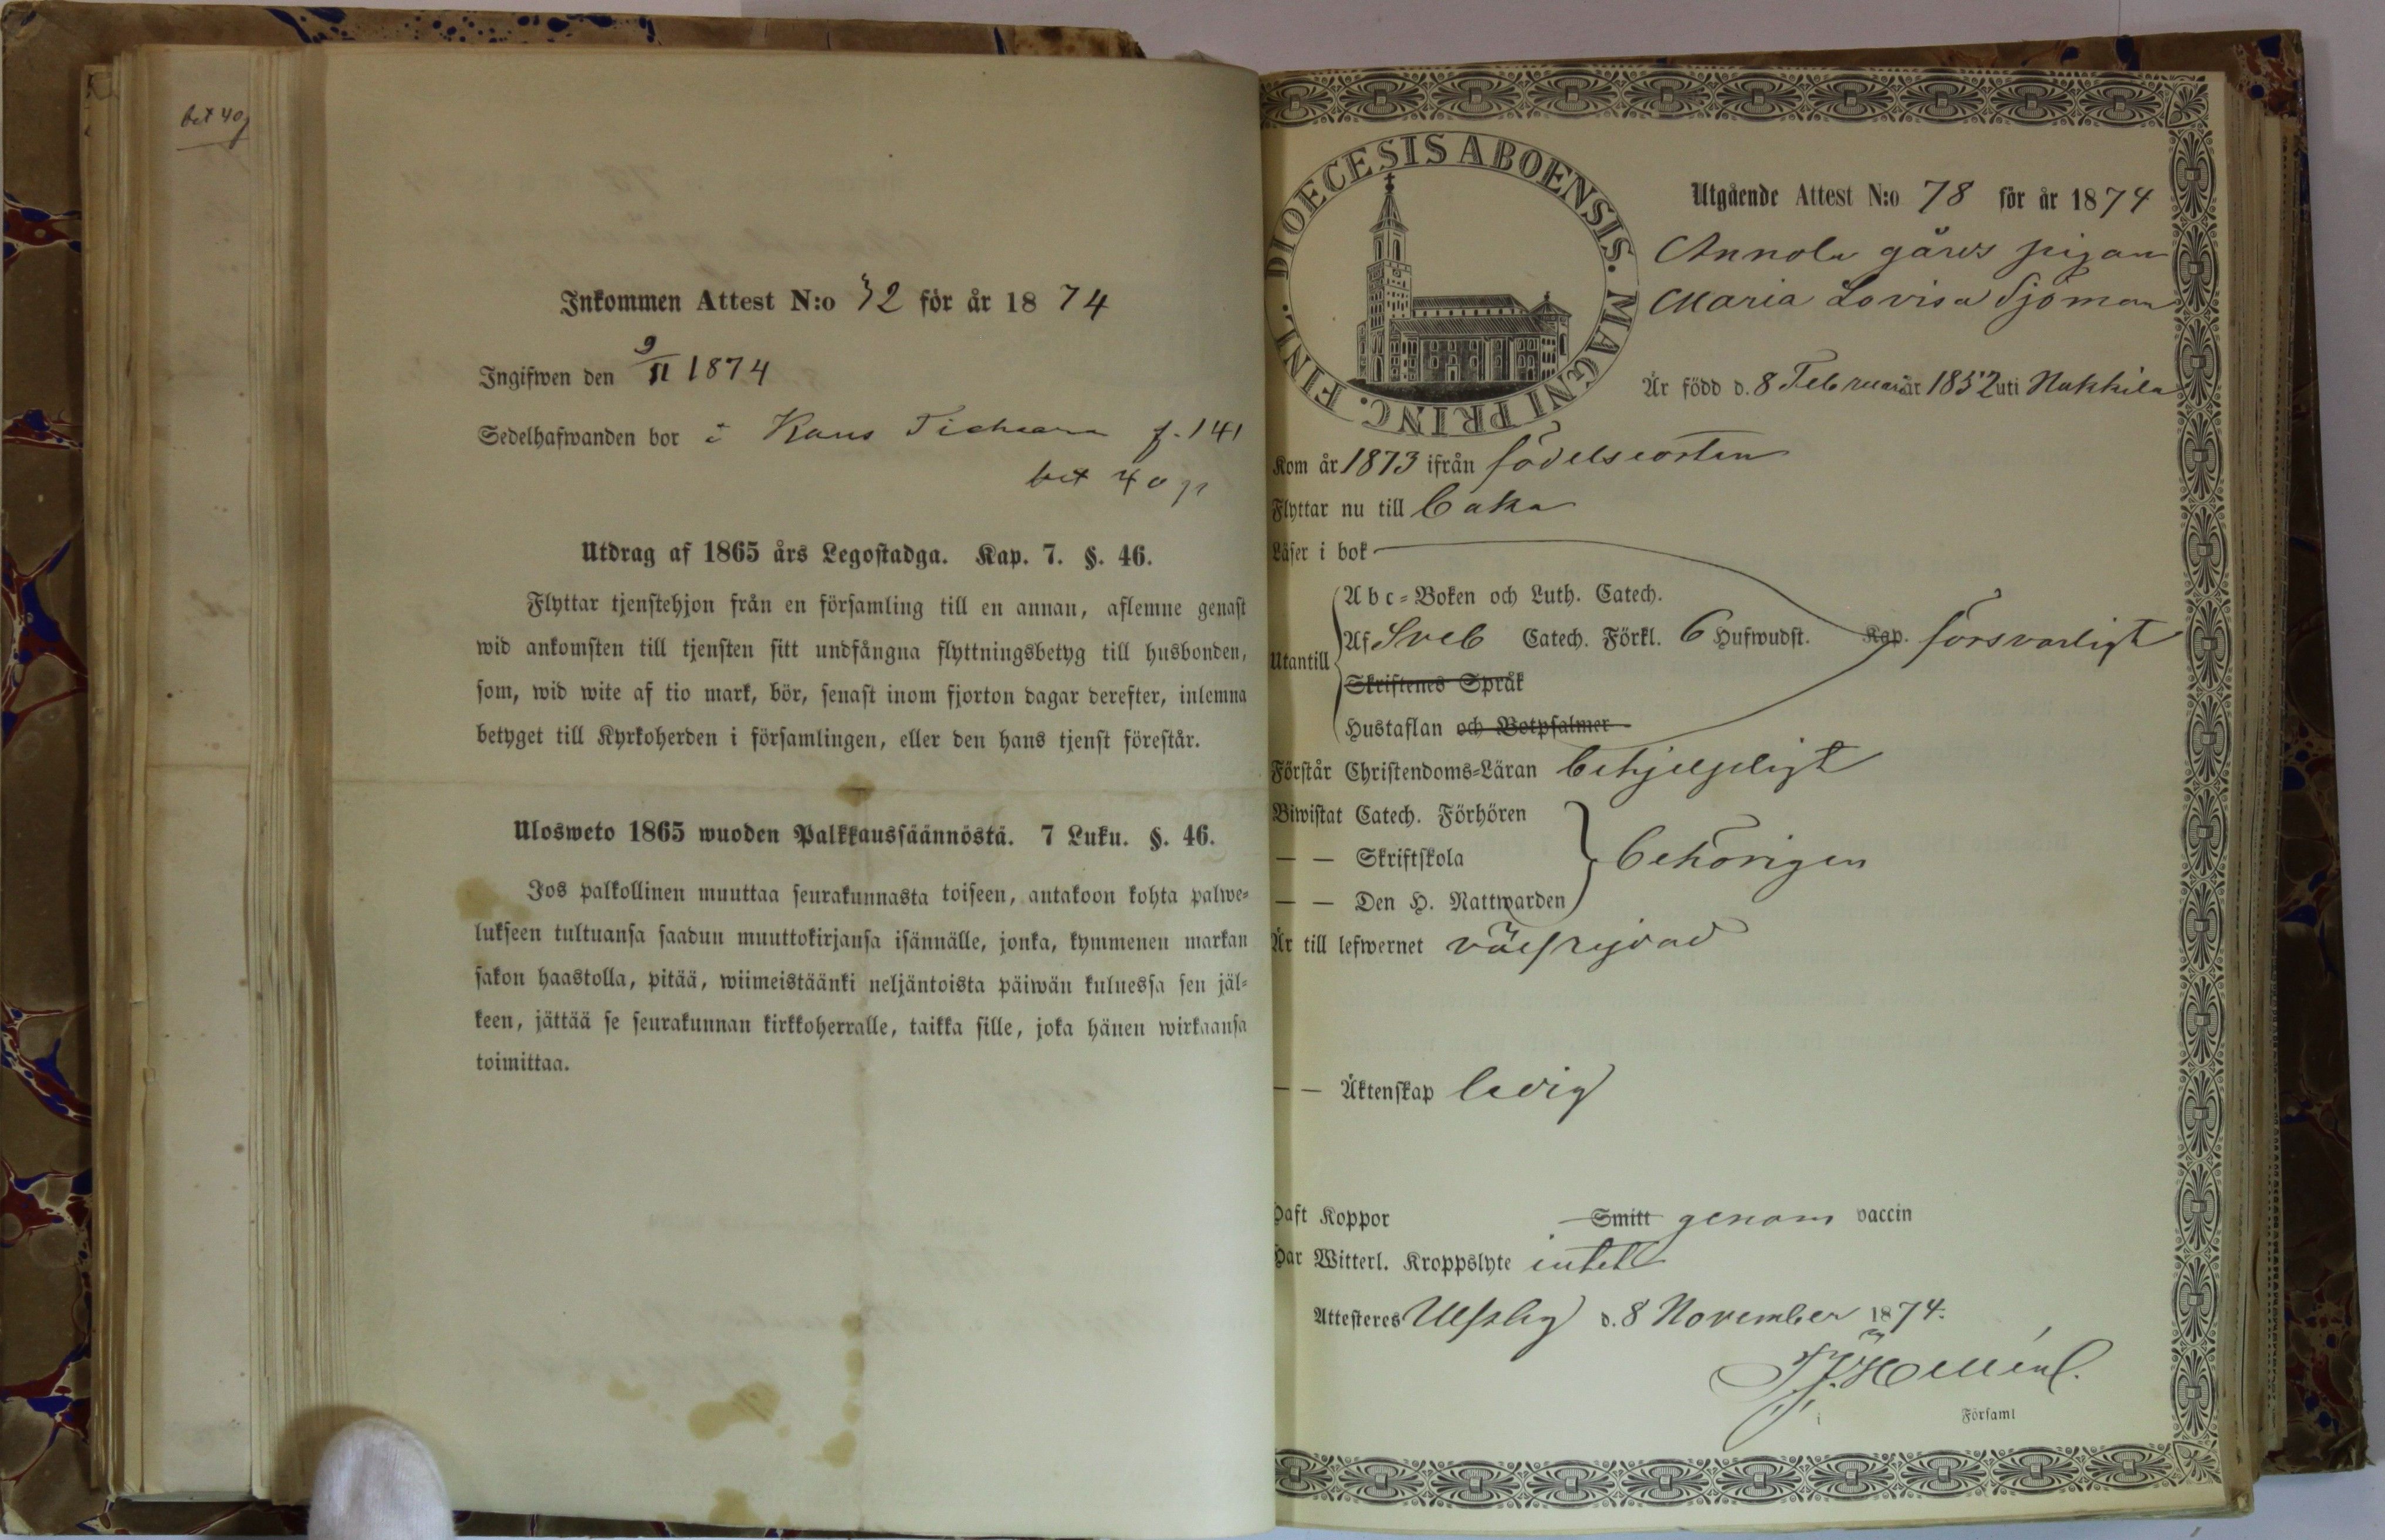 bet 40 p
Inkommen Attest N:o 32 för år 1874
Ingifwen den 9/11 1874
Sedelhafwanden bor i Kaus f. 141
bet 40 p
Utdrag af 1865 års Legostadga. Kap. 7. §. 46.
Flyttar tjenstehjon från en församling till en annan, aflemne genast
wid ankomsten till tjensten sitt undfångna flyttningsbetyg till husbonden,
som, wid wite af tio mark, bör, senast inom fjorton dagar derefter, inlemna
betyget till Kyrkoherden i församlingen, eller den hans tjenst förestår.
Ulosweto 1865 wuoden Palkkaussäännöstä. 7 Luku. §. 46.
Jos palkollinen muuttaa seurakunnasta toiseen, antakoon kohta palwe=
lukseen tultuansa saadun muuttokirjansa isännälle, jonka, kymmenen markan
sakon haastolla, pitää, wiimeistäänki neljäntoista päiwän kuluessa sen jäl=
keen, jättää se seurakunnan kirkkoherralle, taikka sille, joka hänen wirkaansa
toimittaa.
FINL. DIOECESIS ABOENSIS. MAGNI PRINC.
Utgående Attest N:o 78 för år 1874
Annola gårds pigan
Maria Lovisa Sjöman
Är född d. 8 Februari år 1852 uti Nakkila
Kom år 1873 ifrån födelseorten
Flyttar nu till
Läser i bok
Abc=Boken och Luth. Catech.
Utantill Af Sveb Catech. Förkl. 6 Hufwudst. Kap. försvarligt
Skriftenes Språk
Hustaflan och Botpsalmer
Förstår Christendoms=Läran behjelpligt
Biwistat Catech. Förhören
— — Skriftskola behörigen
— — Den H. Nattwarden
Är till lefwernet välfrejdad
— — Äktenskap ledig
Haft Koppor Smitt genom vaccin
Har Witterl. Kroppslyte intet
Attesteres Ulfsby d. 8 November 1874.
i Församl